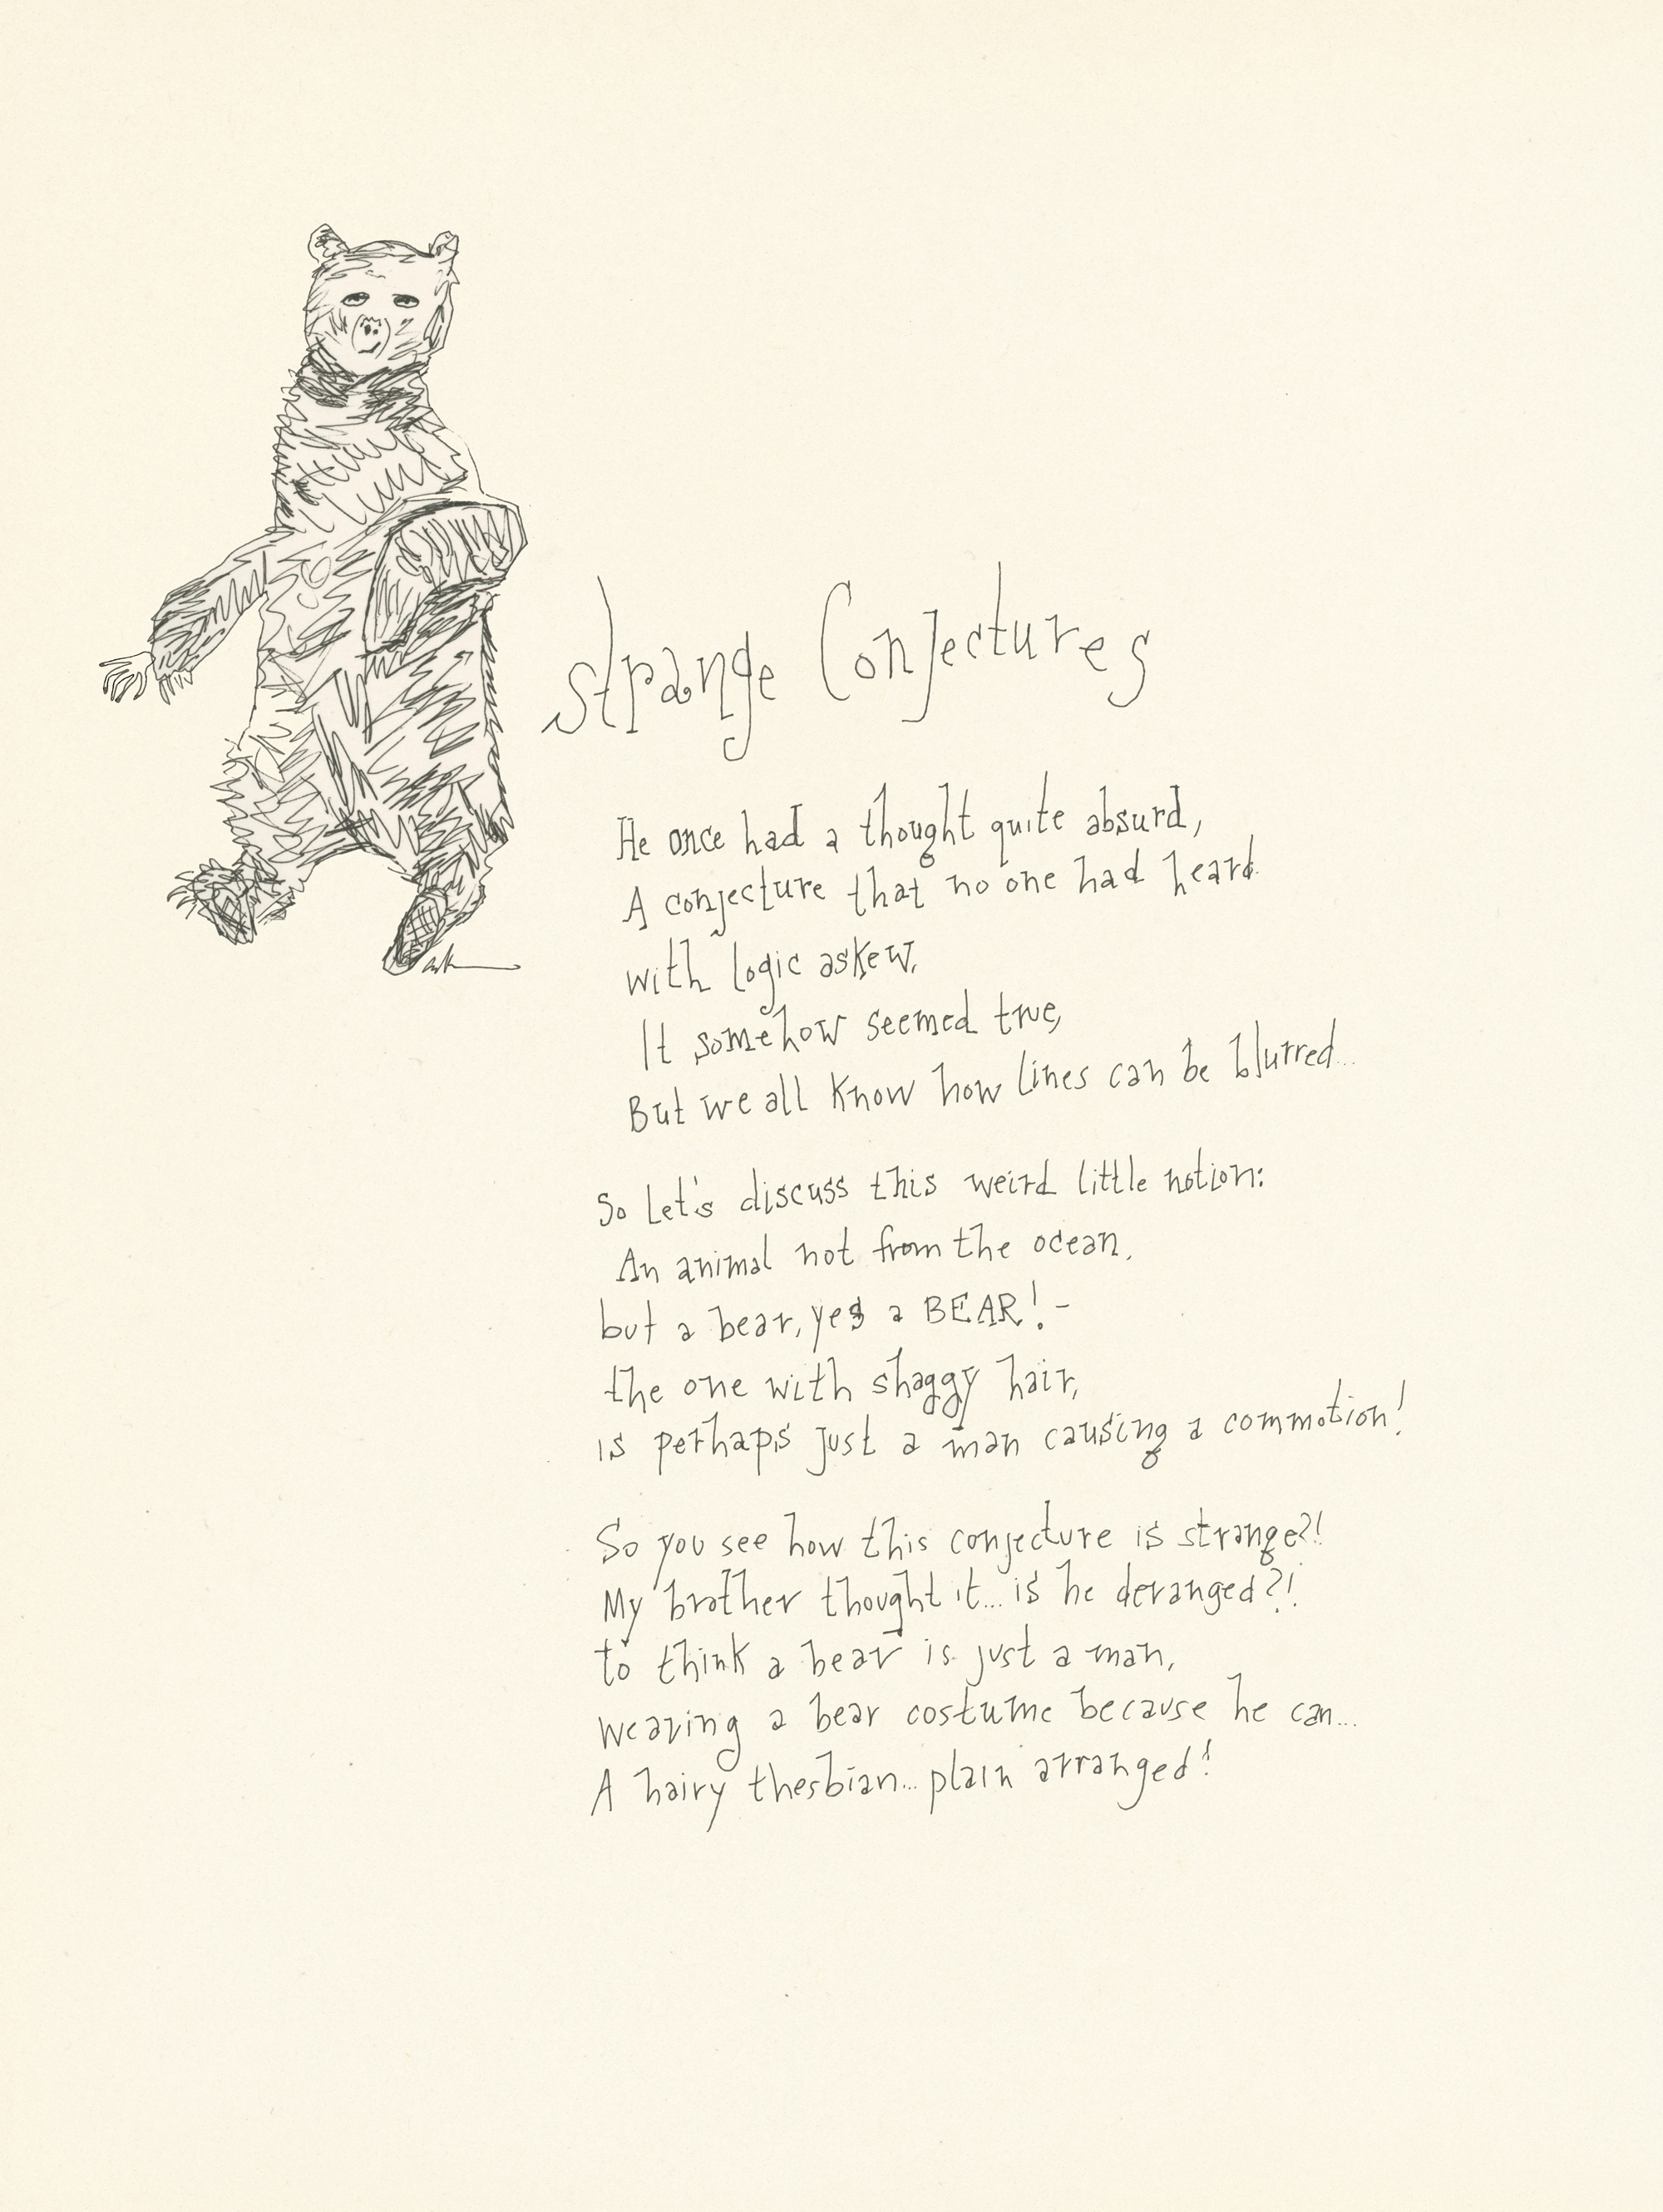 Strange Conjectures
He once had a thought quite absurd,
A conjecture that no one had heard.
with logic askew,
It somehow seemed true,
But we all know how lines can be blurred...
So Let's discuss this weird little notion:
An animal not from the ocean,
but a bear, yes a BEAR! -
the one with shaggy hair,
is perhaps just a man causing a commotion!
So you see how this conjecture is strange?!
My brother thought it... is he deranged?!
to think a bear is just a man,
wearing a bear costume because he can...
A hairy thesbian... plain arranged!